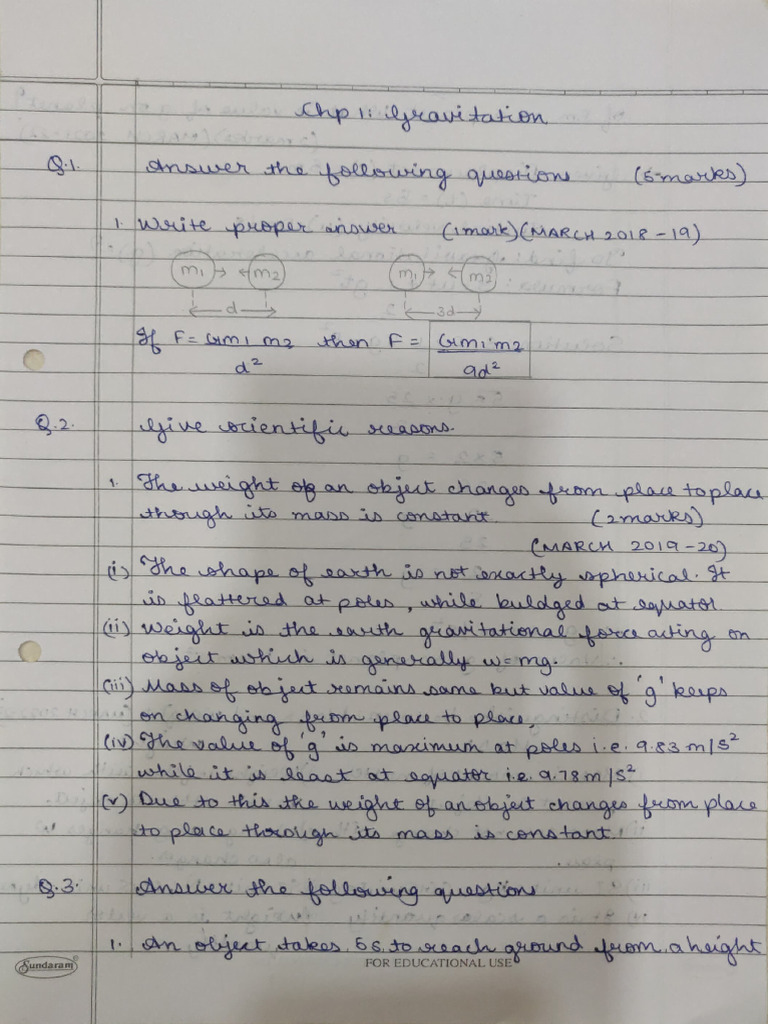 Chp 1: Gravitation
Q.1. Answer the following questions (5 marks)
1. Write proper answer (1 mark) (MARCH 2018-19)
m1 m2 m1 m2
d 3d
If F = Gm1 m2 then F = Gm1 m2
d² 9d²
Q.2. Give scientific reasons.
1. The weight of an object changes from place to place
though its mass is constant. (2 marks)
(MARCH 2019-20)
(i) The shape of earth is not exactly spherical. It
is flattered at poles, while buldged at equator.
(ii) Weight is the earth gravitational force acting on
object which is generally w=mg.
(iii) Mass of object remains same but value of 'g' keeps
on changing from place to place.
(iv) The value of 'g' is maximum at poles i.e. 9.83 m/s²
while it is least at equator i.e. 9.78 m/s²
(v) Due to this the weight of an object changes from place
to place through its mass is constant.
Q.3. Answer the following questions
1. An object takes 5s to reach ground from a height
Sundaram FOR EDUCATIONAL USE